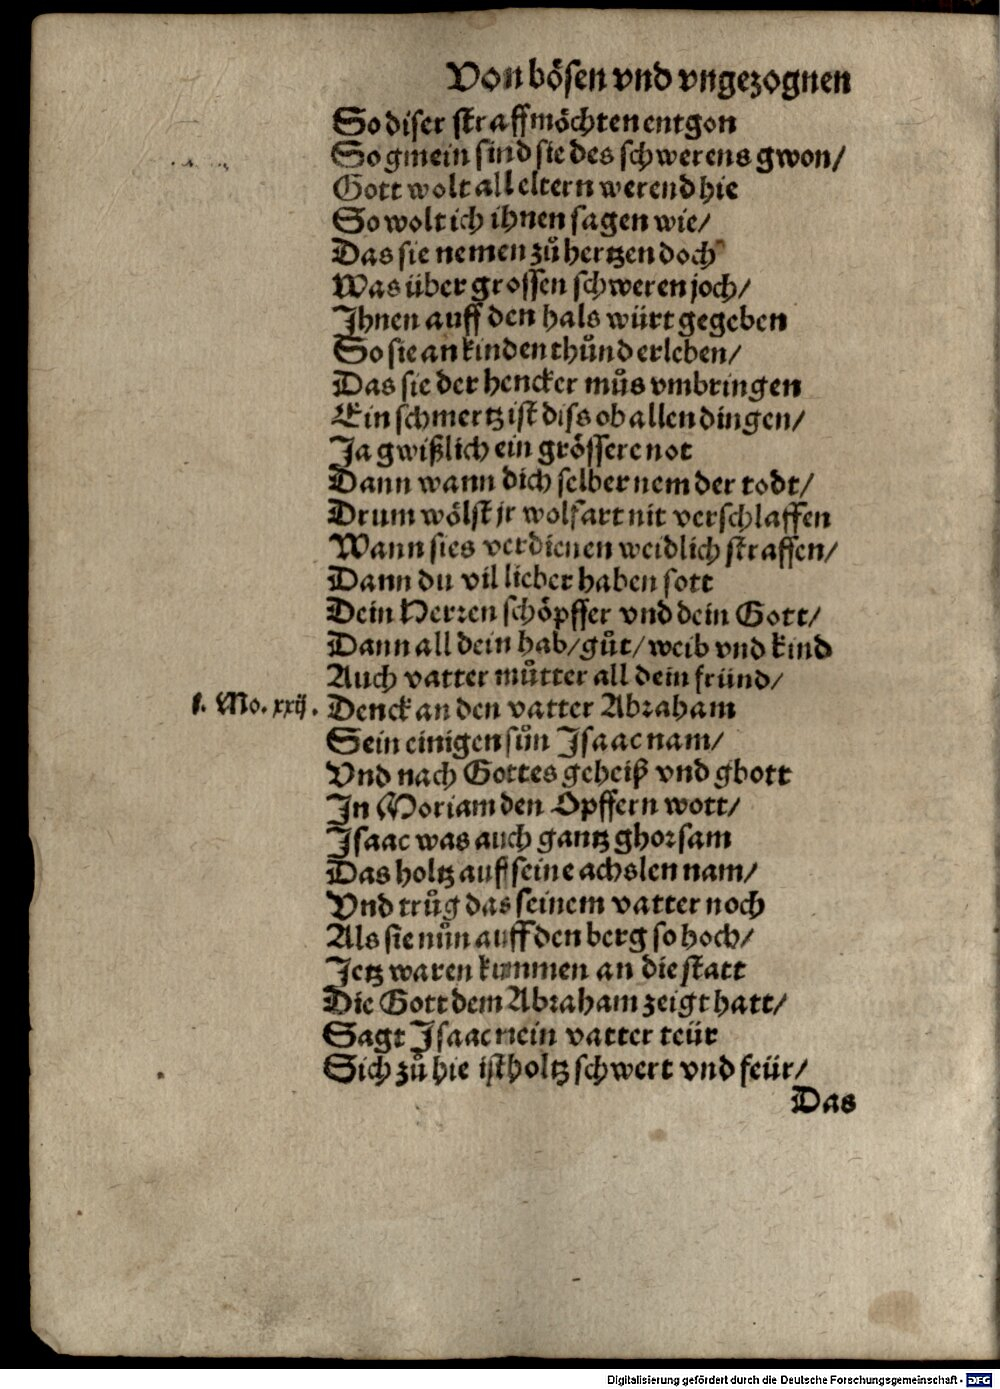 Von bösen vnd vngezognen
So diser straff möchten entgon
So gmein sind sie des schwerens gwon/
Gott wolt all eltern werend hie
So wolt ich ihnen sagen wie/
Das sie nemen zů hertzen doch
Was über grossen schweren joch/
Ihnen auff den hals würt gegeben
So sie an kinden thůnd erleben/
Das sie der hencker můs vmbringen
Ein schmertz ist diss ob allen dingen/
Ja gwißlich ein grössere not
Dann wann dich selber nem der todt/
Drum wölst jr wolfart nit verschlaffen
Wann sies verdienen weidlich straffen/
Dann du vil lieber haben sott
Dein Herren schöpffer vnd dein Gott/
Dann all dein hab/gůt/weib vnd kind
Auch vatter můtter all dein fründ/
1. Mo. xxij. Denck an den vatter Abraham
Sein einigen sůn Isaac nam/
Vnd nach Gottes geheiß vnd gbott
In Moriam den Opffern wott/
Isaac was auch gantz ghorsam
Das holtz auff seine achslen nam/
Vnd trůg das seinem vatter noch
Als sie nůn auff den berg so hoch/
Jetz waren kummen an die statt
Die Gott dem Abraham zeigt hatt/
Sagt Isaac mein vatter teür
Sich zů hie ist holtz schwert vnd feür/
Das
Digitalisierung gefördert durch die Deutsche Forschungsgemeinschaft - DFG